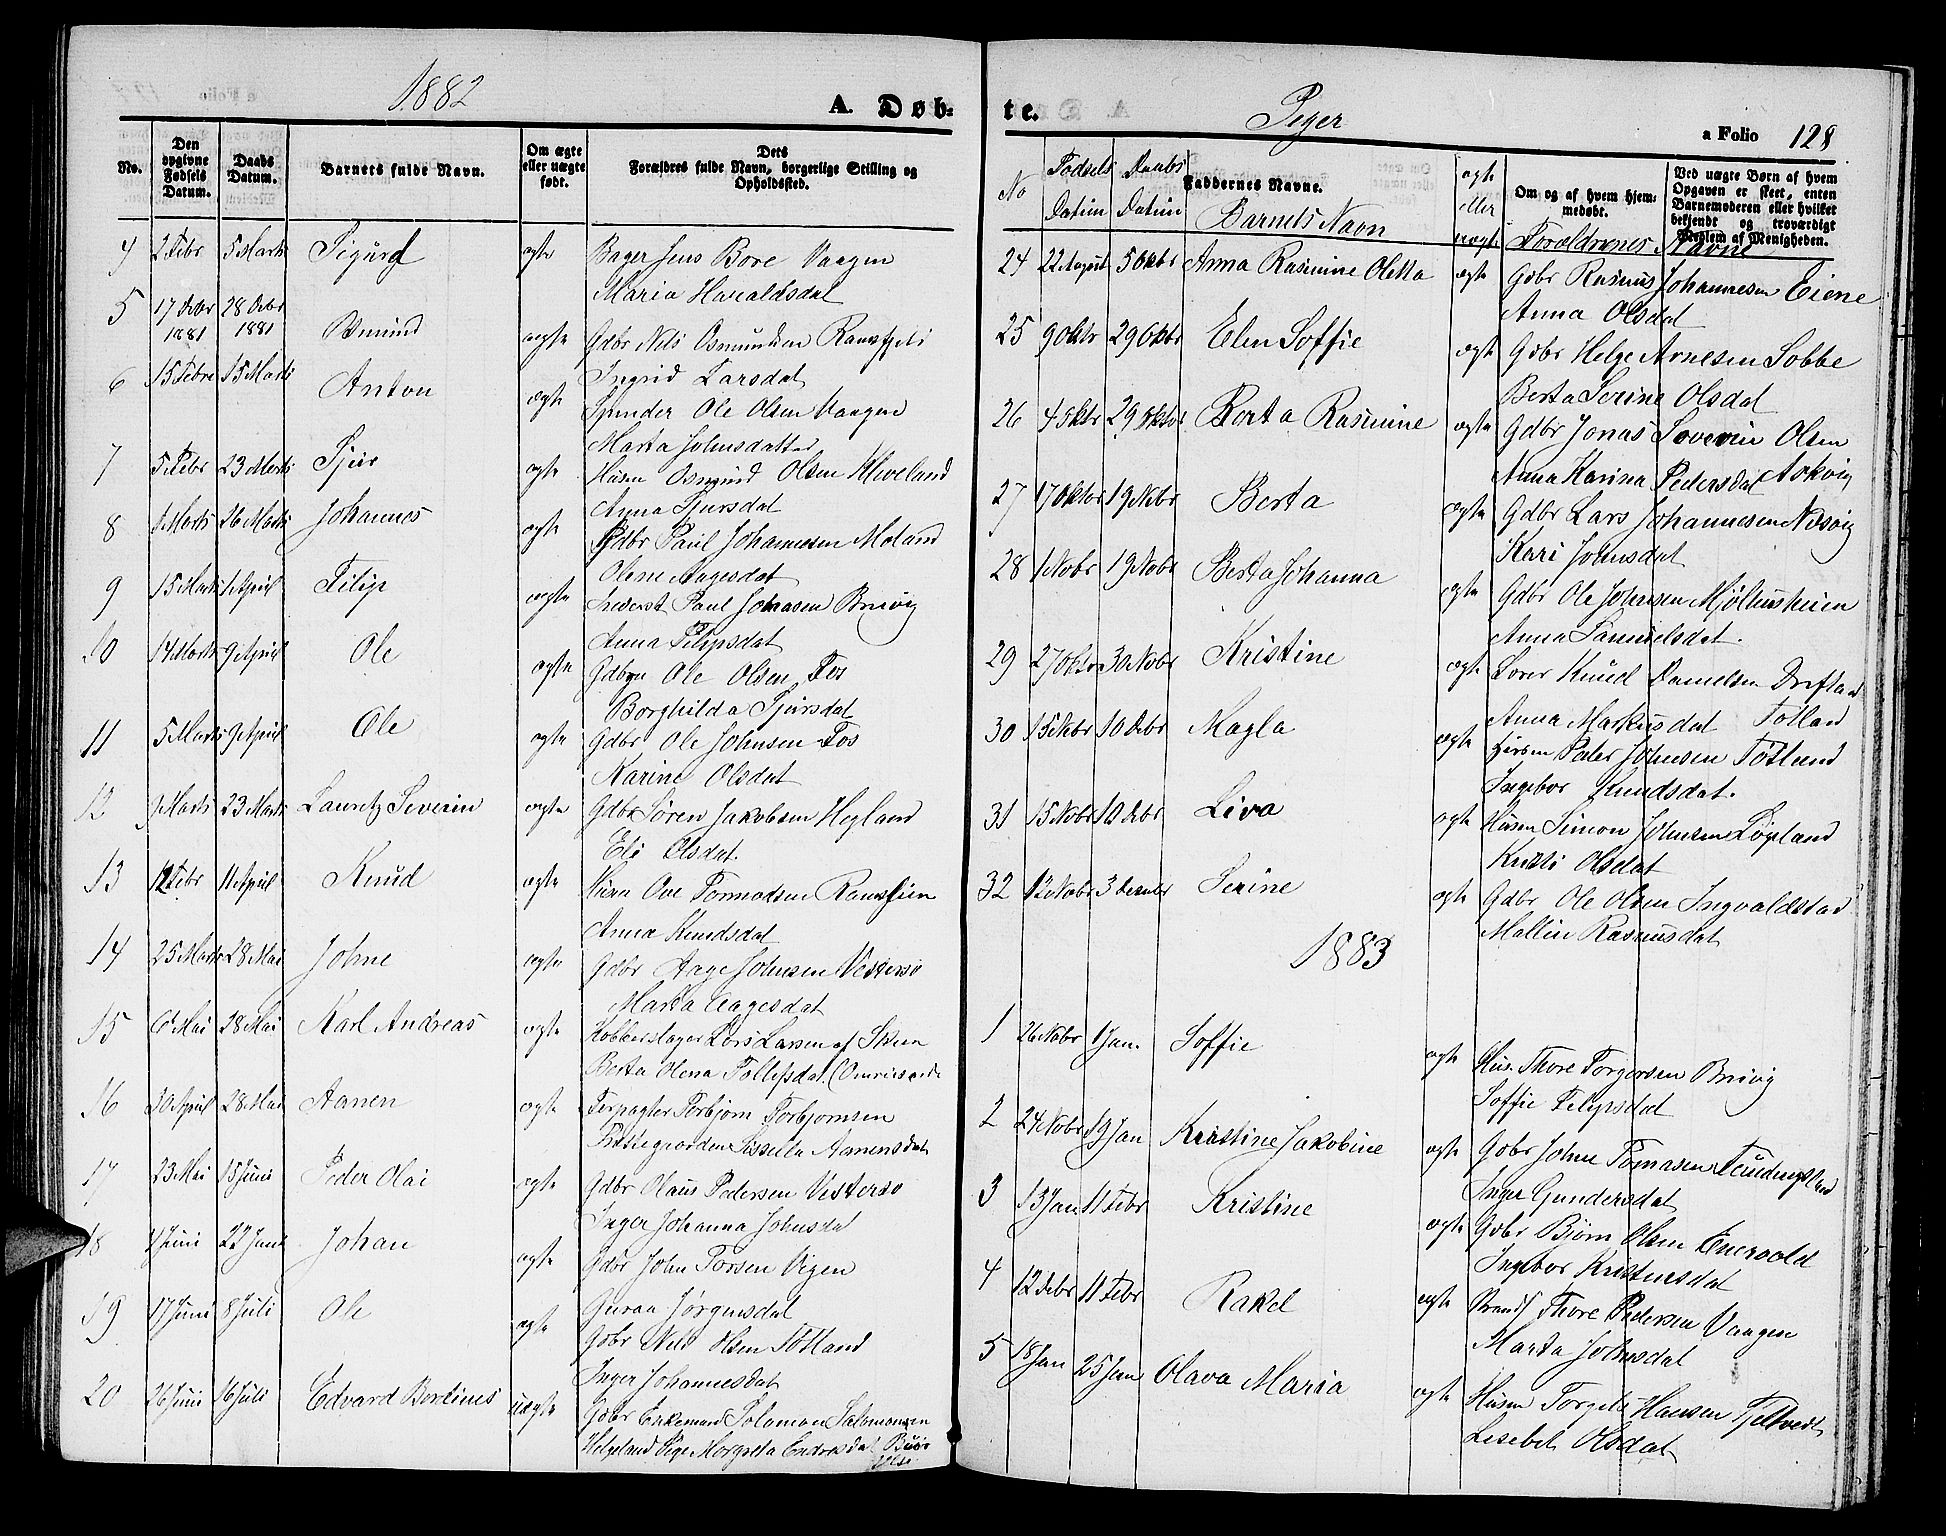 1882
A. Døb-
No.
Den opgivne Fødsels Datum.
Daabs Datum.
Barnets fulde Navn.
Om ægte eller uægte født.
Dets Forældres fulde Navn, borgerlige Stilling og Opholdssted.
4 2 Febr 5 Marts Sigurd ægte Bager Jens Bore Vaagen
Maria Haraldsdat
5 17 Debr 1881 28 Debr 1881 Osmund ægte Gdbr Nils Osmundsen
Ingrid Larsdat
6 15 Febr 15 Marts Anton ægte Ole Olsen Vaagen
Marta Johnsdatter
7 5 Febr 23 Marts Sjur ægte Husm Osmund Olsen Kleveland
Anna Sjursdat
8 Marts 26 Marts Johannes ægte Gdbr Paul Johannesen Moland
Olene Aagesdat
9 15 Marts 1 April Filip ægte Inderst Paul Johnasen Bruvig
Anna Filipsdat
10 14 Marts 9 April Ole ægte Ole Olsen Fos
Borghilda Sjursdat
11 5 Marts 9 April Ole ægte Gdbr Ole Johnsen Fos
Karine Olsdat
12 Marts 23 Marts Lauretz Severin ægte Gdbr Søren Jakobsen Hogland
Eli Olsdat.
13 12 Febr 11 April Knud ægte Ove Tormodsen
Anna Knudsdat
14 25 Marts 28 Mai Johne ægte Gdbr Aage Johnsen Vestersø
Marta Aagesdat
15 Mai 28 Mai Karl Andreas ægte Kobberslager Lars Larsen af Skien
Berta Olena (Omreisende
16 30 April 28 Mai Aanen ægte Forpagter Torbjørn Torbjørnsen
Præstegaarden Sissella Aanensdat
17 23 Mai 15 Juni Peder Olai ægte Gdbr Olaus Pedersen Vestersø
Inger Johanna Johnsdat
18 Juni 22 Juni Johan ægte Gdbr John Torsen Vigen
Guraa Jørgensdat
19 17 Juni 8 Juli Ole ægte Gdbr Nils Olsen Totland
Inger Johannesdat
20 26 Juni 16 Juli Edvard Bertinus uægte Gdbr Enkemand Salomon Salomonsen
Helgeland Pige Margreta Endresdat
te.
Piger
a Folio 128
No
Fødsels Datum
Daabs Datum
Faddernes Navne.
Barnets Navn
ægte eller uægte
Om og af hvem hjemmedøbt.
Ved uægte Børn af hvem Opgaven er skeet, enten Barnemoderen eller hvilket bekjendt og troværdigt Medlem af Menigheden.
Forældrenes Navne
24 22 August 5 Oktbr Anna Rasmine Oletta ægte Gdbr Rasmus Johannesen Eiene
Anna Olsdat
25 9 Oktr 29 Oktbr Elen Soffie ægte Gdbr Helge Arnesen Sobbe
Berta Serine Olsdat
26 4 Oktr 29 Oktbr Berta Rasmine ægte Gdbr Jonas Severin Olsen
Anna Karina Pedersdat Askvig
27 17 Oktbr 19 Nobr Berta ægte Gdbr Lars Johannesen Nesvig
Kari Johnsdat
28 1 Nobr 19 Nobr Berta Johanna ægte Gdbr Ole Johnsen Mjølhusheien
Anna Samuelsdat.
29 27 Oktbr 30 Nobr Kristine ægte Lærer Knud Danielsen
Anna Markusdat Totland
30 15 Nobr 10 Debr Magla ægte Husm Peder Johnsen Totland
Ingebor Knudsdat.
31 15 Nobr 10 Debr Liva ægte Husm Simon Johnsen Løgeland
Kristi Olsdat
32 12 Nobr 3 Desmbr Serine ægte Gdbr Ole Olsen Ingvaldstad
Mallin Rasmusdat
1883
1 26 Nobr 1 Jan. Soffie ægte Hus. Thore Torgersen Bruvig
Soffie Filipsdat
2 24 Nobr 19 Jan Kristine Jakobine ægte Gdbr Johne Tomasen
Inger Gundersdat
3 13 Jan 11 Febr Kristine ægte Gdbr Bjørn Olsen Enervold
Ingebor Kristensdat
4 12 Debr 11 Febr Rakel ægte Strands. Thore Pedersen Vaagen
Marta Johnsdat
5 18 Jan 25 Jan Olava Maria ægte Husm Torgels Hansen Tjeltvedt
Lisebet Olsdat